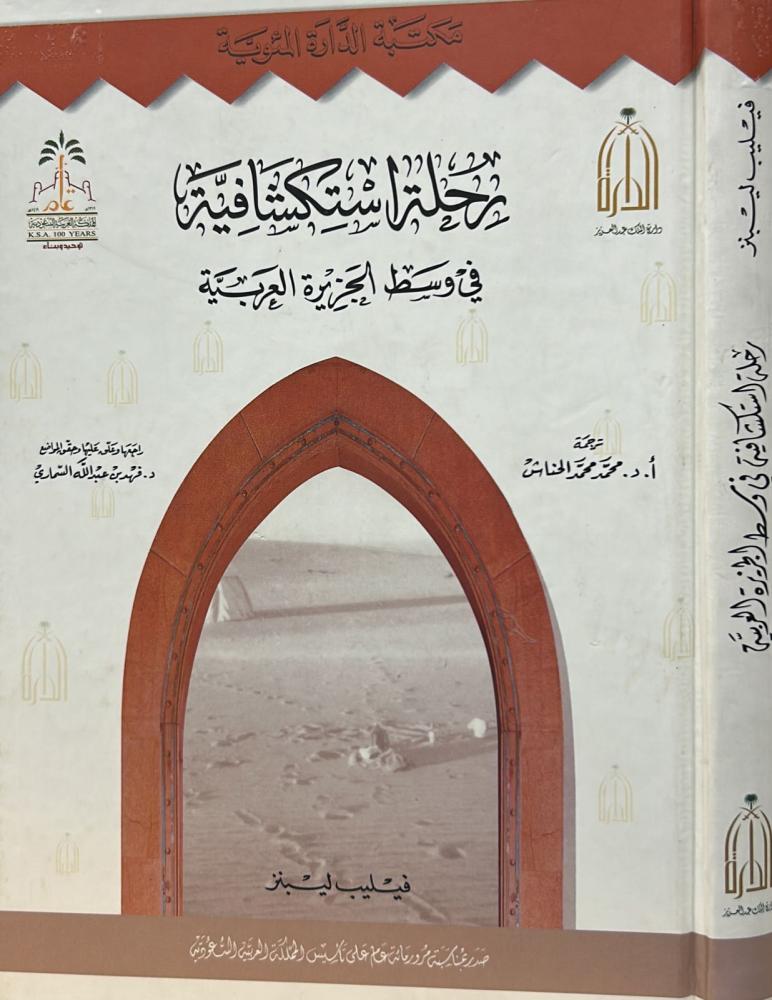 مكتبة الدارة المئوية
الدارة
دارة الملك عبدالعزيز
عام
المملكة العربية السعودية
K.S.A. 100 YEARS
توحيد وبناء
رحلة استكشافية
في وسط الجزيرة العربية
ترجمة
أ. د. محمد محمد الحناش
راجعها وعلق عليها وحقق المواضع
د. فهد بن عبدالله السماري
فيليب ليبنز
صدر بمناسبة مرور مائة عام على تأسيس المملكة العربية السعودية
فيليب ليبنز
رحلة استكشافية في وسط الجزيرة العربية
الدارة
دارة الملك عبدالعزيز